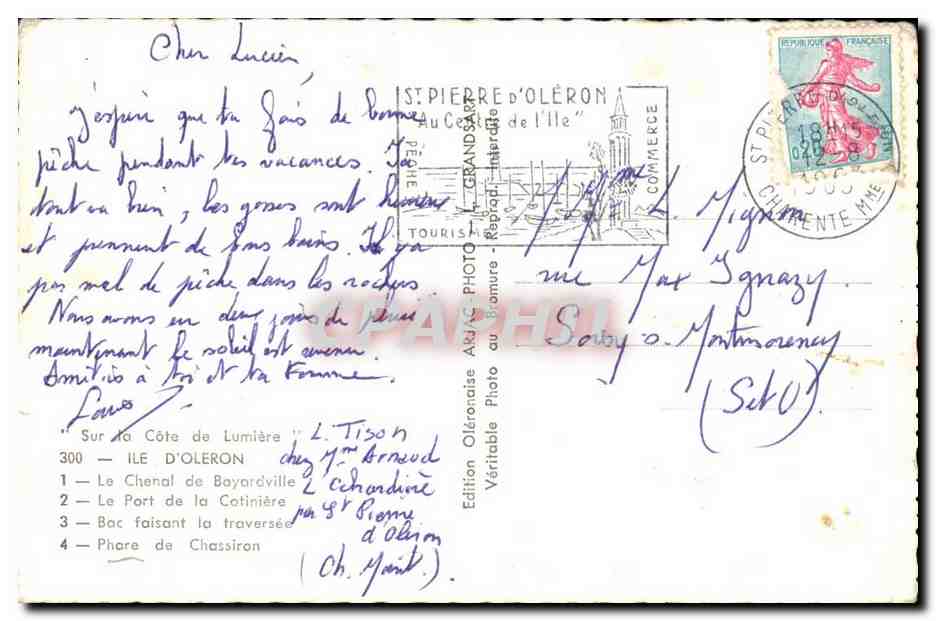 Cher Lucien,
J'espère que tu fais de bonne
pêche pendant tes vacances. Ici
tout va bien, les gosses sont heureux
et prennent de bons bains. Il y a
pas mal de pêche dans les rochers.
Nous avons eu deux jours de pluie
maintenant le soleil est revenu.
Amitiés à toi et ta Femme.
Louis
" Sur la Côte de Lumière "
300 — ILE D'OLERON
1 — Le Chenal de Boyardville
2 — Le Port de la Cotinière
3 — Bac faisant la traversée
4 — Phare de Chassiron
L. Tison
chez Mme Arnaud
L
par St Pierre
d'Oléron
(Ch. Marit.).
Edition Oléronaise ARJAC-PHOTO J. GRANDSART
Véritable Photo au Bromure - Reprod. interdite
ST PIERRE D'OLÉRON
"Au Centre de l'Ile"
PÊCHE
COMMERCE
TOURISME
REPUBLIQUE FRANÇAISE
ST PIERRE D'OLERON
18H15
12-8
CHARENTE MME
L. Mignon
rue Max Ignazy
s. Montmorency
(S et O).
CPAPHIL